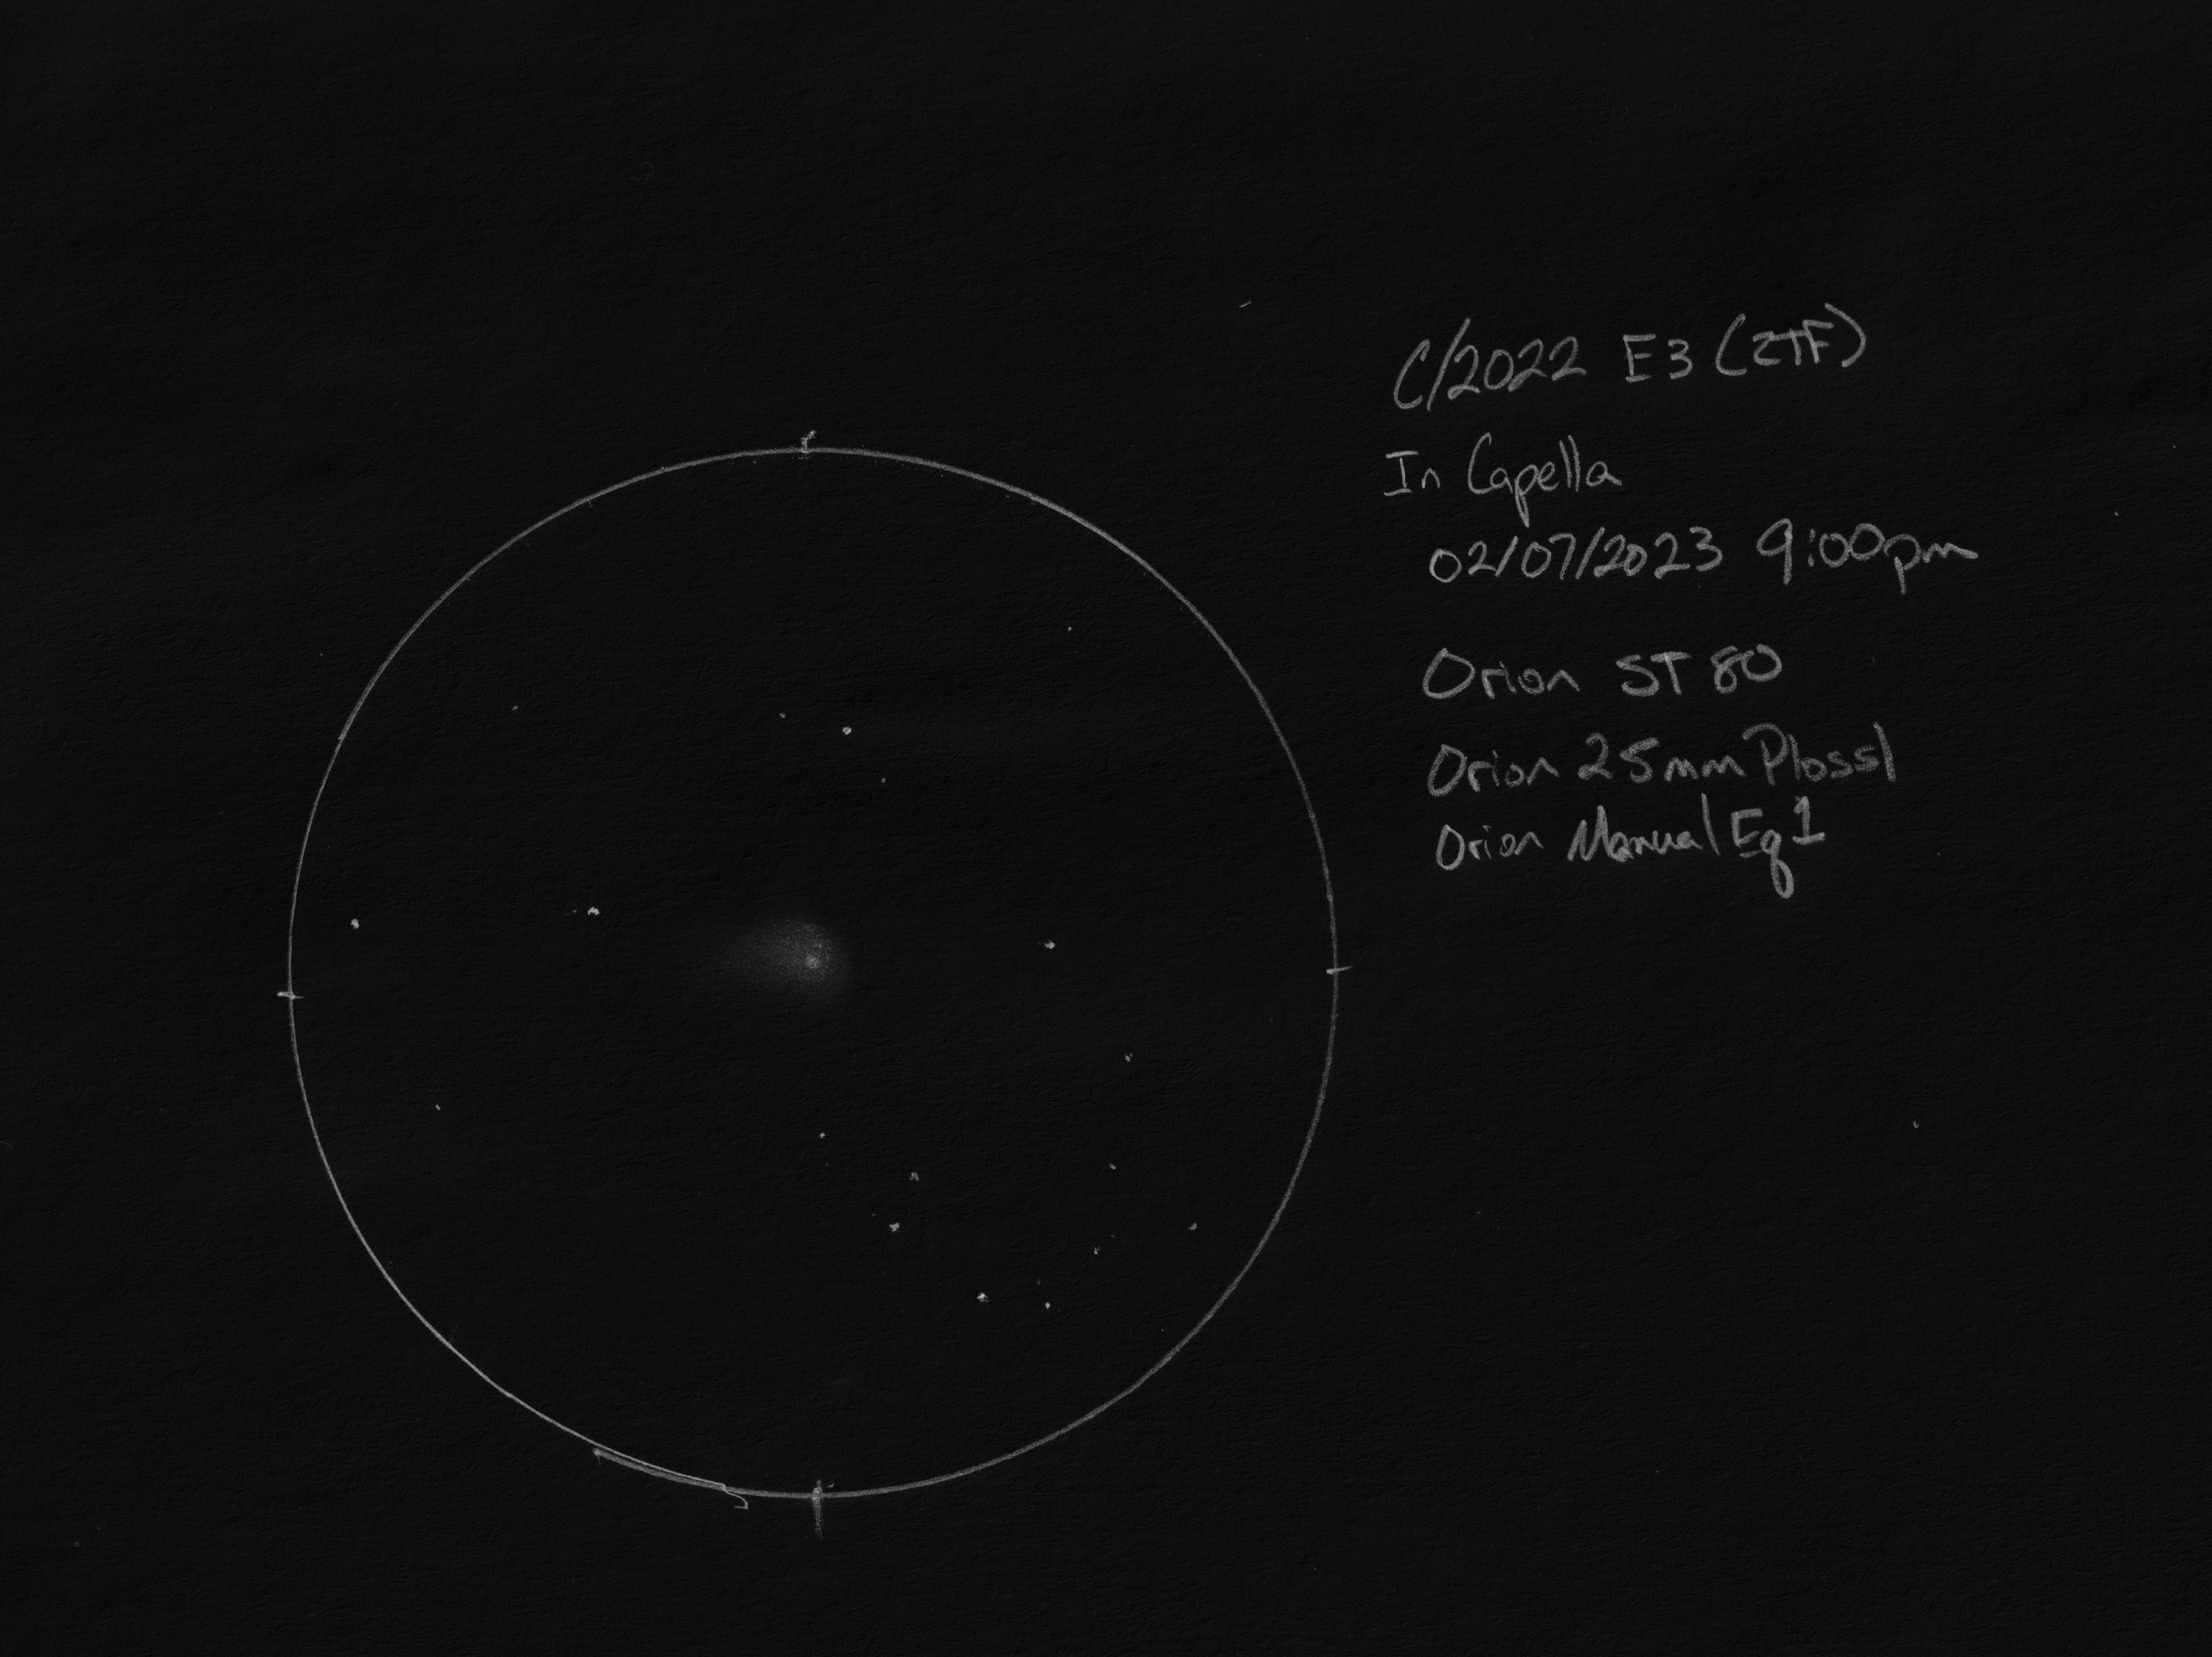 C/2022 E3 (ZTF)
In Capella
02/07/2023 9:00pm
Orion ST 80
Orion 25mm Plossl
Orion Manual Eq1